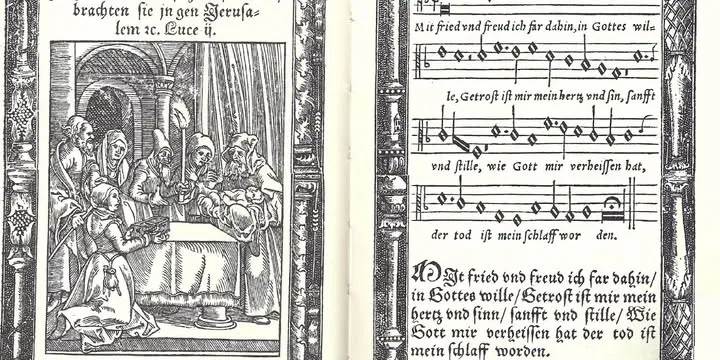 brachten sie jn gen Jerusa=
lem ꝛc. Luce ij.
Mit fried vnd freud ich far dahin, in Gottes wil=
le, Getrost ist mir mein hertz vnd sin, sanfft
vnd stille, wie Gott mir verheissen hat,
der tod ist mein schlaff wor den.
MIt fried vnd freud ich far dahin/
in Gottes wille/ Getrost ist mir mein
hertz vnd sinn/ sanfft vnd stille/ Wie
Gott mir verheissen hat der tod ist
mein schlaff worden.